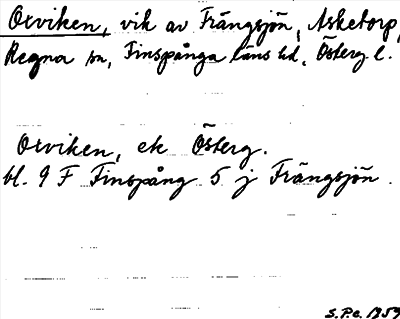 Oxviken, vik av Frängsjön, Asketorp,
Regna sn, Finspånga läns hd, Österg l.
Oxviken, ek Österg.
bl. 9 F Finspång 5 j Frängsjön.
S.P.C. 1959